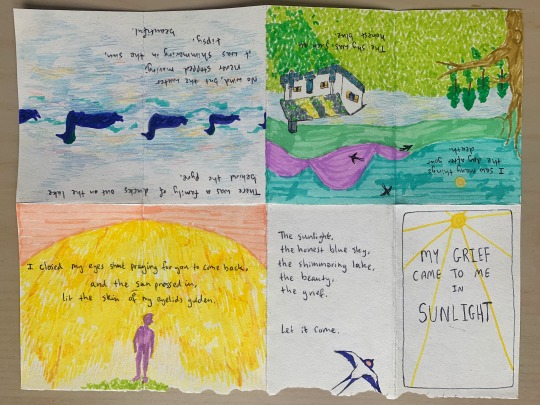 MY GRIEF
CAME TO ME
IN
SUNLIGHT
I saw many things
the day after your
death.
The sky was such an
honest blue
There was a family of ducks out on the lake
behind the Pyre.
No wind, but the water
never stopped moving,
it was shimmering in the sun,
tipsy,
beautiful.
I closed my eyes shut praying for you to come back,
and the sun pressed in,
lit the skin of my eyelids golden.
The sunlight,
the honest blue sky,
the shimmering lake,
the beauty,
the grief.
Let it come.